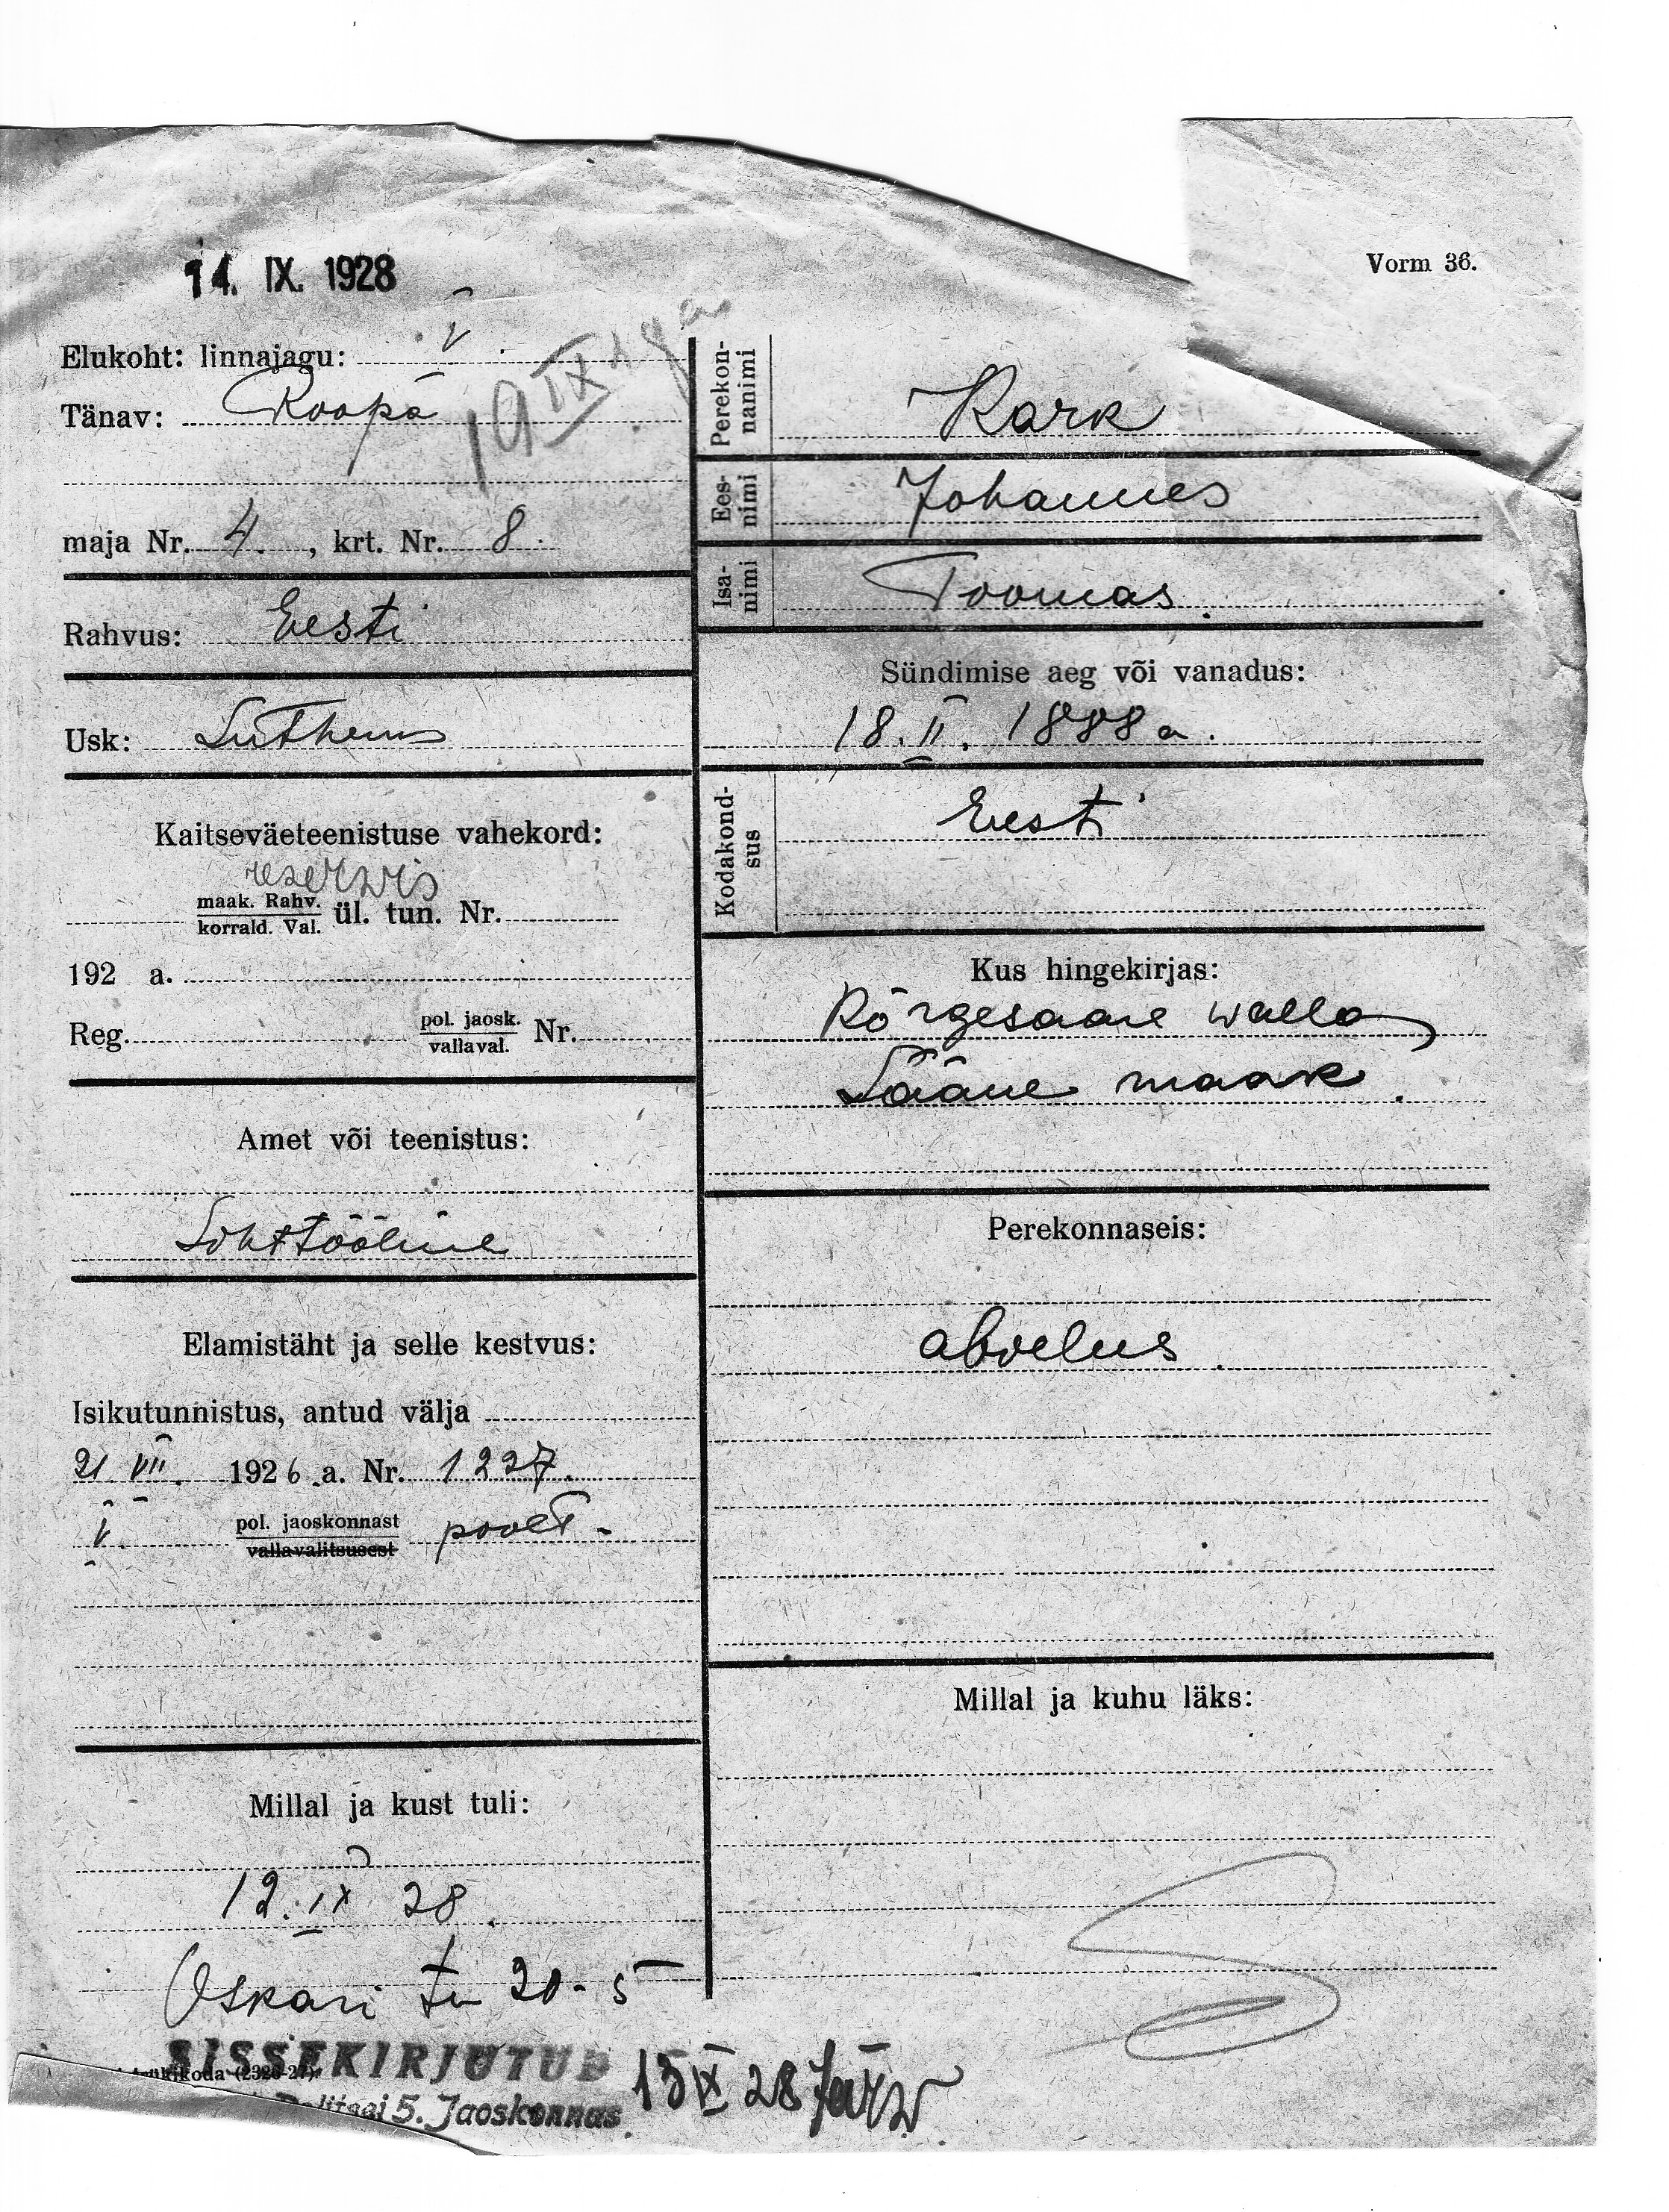 14. IX. 1928
Vorm 36.
Elukoht: linnajagu: V
Tänav: Roopa
19 IX
maja Nr. 4. , krt. Nr. 8.
Rahvus: Eesti
Usk: Lutherus
Kaitseväeteenistuse vahekord:
reserwis
maak. Rahv. korrald. Val. ül. tun. Nr.
192 a.
Reg. pol. jaosk. vallaval. Nr.
Amet või teenistus:
Lihttööline
Elamistäht ja selle kestvus:
Isikutunnistus, antud välja
21 VII. 1926 a. Nr. 1227.
V. pol. jaoskonnast vallavalitsusest poolt.
Millal ja kust tuli:
12. IX 28.
Oskari tn 20-5
Perekonnanimi Kark
Eesnimi Johannes
Isanimi Toomas.
Sündimise aeg või vanadus:
18. II. 1888 a.
Kodakondsus Eesti
Kus hingekirjas:
Kõrgesaare walla
Lääne maak.
Perekonnaseis:
abielus.
Millal ja kuhu läks:
SISSEKIRJUTUD
ükikoda (2326-27)
Politsei 5. Jaoskonnas
15 IX 28